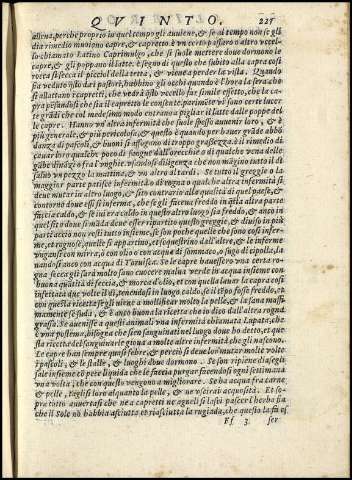 QVINTO. 227
altena, perche proprio in quel tempo gli auuiene, & se al tempo non se gli
da rimedio muoiono capre, & capretto è vn certo passero o altro vccel-
lo chiamato Latino Caprimulgo, che si suole mettere doue dormono le
capre, & gli poppano il latte: è segno di questo che subito alla capra cosi
tocca si secca il picciol della tetta, & viene a perder la vista. Quando
sia veduto q̃sto da i pastori, habbino gli occhi quando è l'hora la sera che
si allattano i capretti, che vedrà q̃sto vccello far simile effetto, che la ca
pra pensandosi che sia il capretto le consente. parimẽte vi sono certe lucer-
te grãdi che col medesimo modo entrano a pigliar il latte dalle poppe del
le capre. Hanno vn'altra infermità che suole spesso auuenir loro, & è
più generale, & più pericolosa, & questo è quando per hauer grãde abbõ
danza di pascoli, & buoni si affogano di troppo grassezza: il rimedio è di
cauar loro qualche poco di sangue dall'orecchie o di qualche vena delle
gãbe dinãzi o fra l'vnghie. vsandosi diligenza che non mãgino tutto il dì
saluo vn pezzo la mattina, & vn altro al tardi. Se tutto il greggie o la
maggior parte patisce infermità di rogna o qualche altra infermità si
deue mutar in altro luogo, & sito contrario alla qualità di quel paese, &
contorno doue essi si inferma, che se gli faceua freddo in q̃lla altra parte
faccia caldo, & se iui era caldo in quest'altro luogo sia freddo, & anco in
quel sito doue si mãda deue esser ripartito questo greggie, & diuiso in piu
parte accio non sia tutto insieme, & son poche quelle che sono cosi infer-
me, et rognose, quelle si appartino, et si seruino dall'altre, & le inferme
vngansi con nitrio, ò con olio o con acqua di sommaco, o sugo di cipolla, la
uandosi con acqua di Tanasseto. Se le capre hauessero vna certa ro-
gna secca gli sarà molto sano cuocere malua verde in acqua insieme con
buona qualità di feccia, & morca d'olio, et con quella lauar la capra cosi
infettata due volte il dì, tenendosi in luogo caldo, se il tẽpo fusse freddo, et
con questa ricetta se gli viene a mollificar molto la pelle, & la sana massi-
mamente se suda, & è anco buona la ricetta che io dico dall'altra rogna
grassa. Se auuenisse a questi animali vna infermità chiamata Lapata, che
è vna postema, bisogna che siẽ sanguinati nel luogo doue ho detto, et que
sta ricetta del sanguinarle gioua a molte altre infermità che gli nascono.
Le capre han sempre quasi febre, & perciò si deue lor mutar molte volte
i pascoli, & le stalle, & luoghi doue dormono. Se son ripiene dia segli
sale insieme cõ pece liquida che le faccia purgar facendosi ogni settimana
vna volta, che con questo vengono a migliorare. Se ha acqua fra carne,
& pelle, taglisi loro alquanto la pelle, & ne vscirà acquosità. Et so-
pra tutto auuertasi che ne a capretti ne agneli si lasci pascer l'herba sin
che il Sole nõ habbia asciutta et riasciutta la rugiada, che questo la fà es
Ff 3 ser